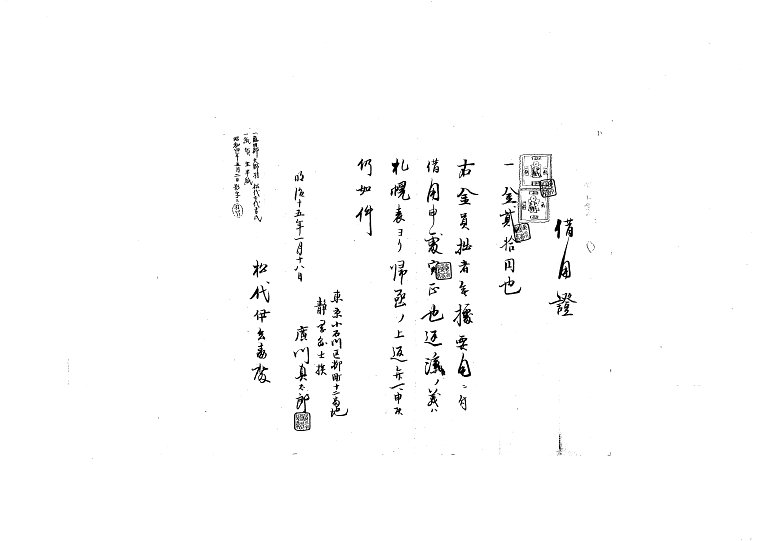 借用證
一金貳拾円也
右金員拙者無據要用ニ付
借用申處實正也返濟ノ義ハ
札幌表ヨリ帰函ノ上返弁可申候
仍如件
明治十五年一月十八日
東京小石川区柳町十二番地
静岡縣士族
廣川真太郎
松代伊兵衛殿